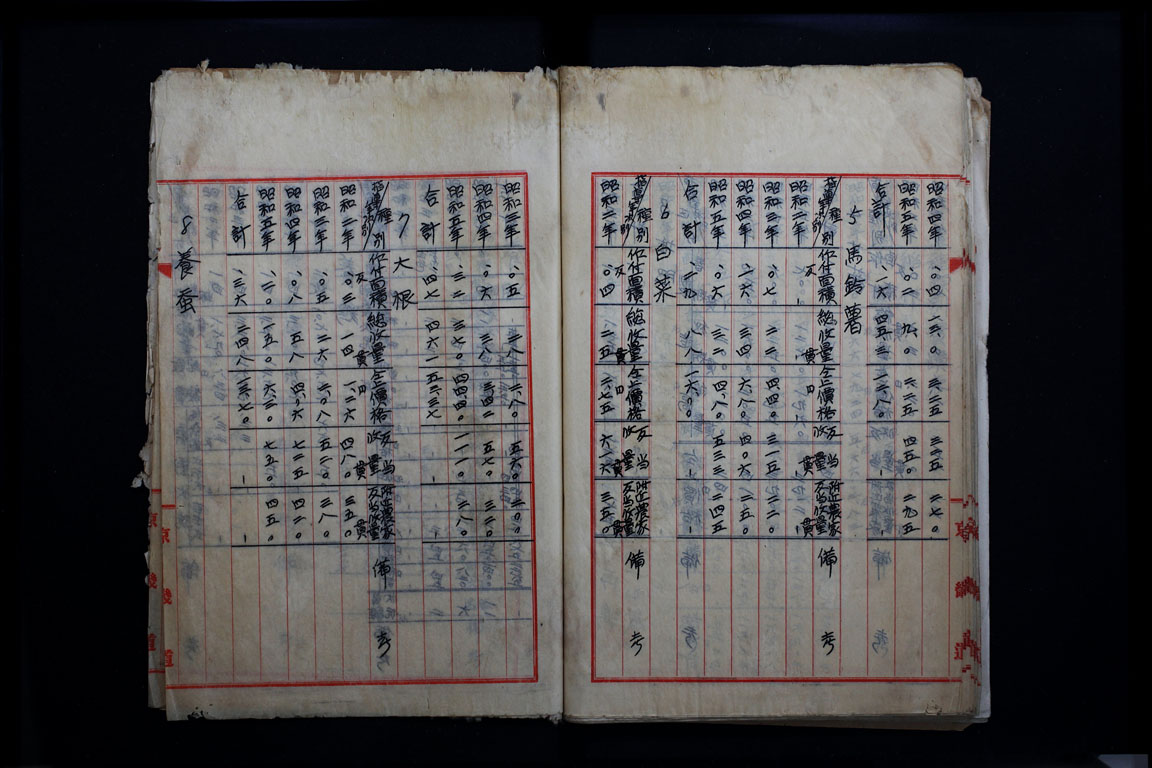 昭和四年 、〇四 一三、〇 三、二五 三二五 二七〇
昭和五年 、〇二 九、〇 二、二五 四五〇 二九五
合計 、〇六 四五、三 一一、八〇
5 馬鈴薯
種別 作付面積 反 總收量 貫 仝上價格 反当收量 貫 附近農家反当收量 貫 備考
昭和二年
昭和三年 、〇七 二二 四、四〇 三一五 二二〇
昭和四年 、一六 三四 六、八〇 四〇六 二五〇
昭和五年 、〇六 三二 四、八〇 五三三 二四五
合計 、二九 八八 一六、〇〇
6 白菜
種別 作付面積 反 總收量 貫 仝上價格 円 反当收量 貫 附近農家反当收量 貫 備考
昭和二年 、〇四 二五 二、七五 六一六 三五〇
昭和三年 、〇五 二八 二、八〇 五六〇 三〇〇
昭和四年 、〇六 三八 三、四二 五七〇 三二〇
昭和五年 、三二 三七〇 四四、四〇 一一一〇 二八〇
合計 、四七 四六一 五三、三七
7 大根
種別 作付面積 反 總收量 貫 仝上價格 円 反当收量 貫 附近農家反当收量 貫 備考
昭和二年 、〇三 一四 一、二六 四八〇 三五〇
昭和三年 、〇五 二六 二、〇八 五二〇 三八〇
昭和四年 、〇八 五八 四、〇六 七二五 四二〇
昭和五年 、二〇 一五〇 六、三〇 七五〇 四五〇
合計 、三六 二四八 一三、七〇
8 養蚕